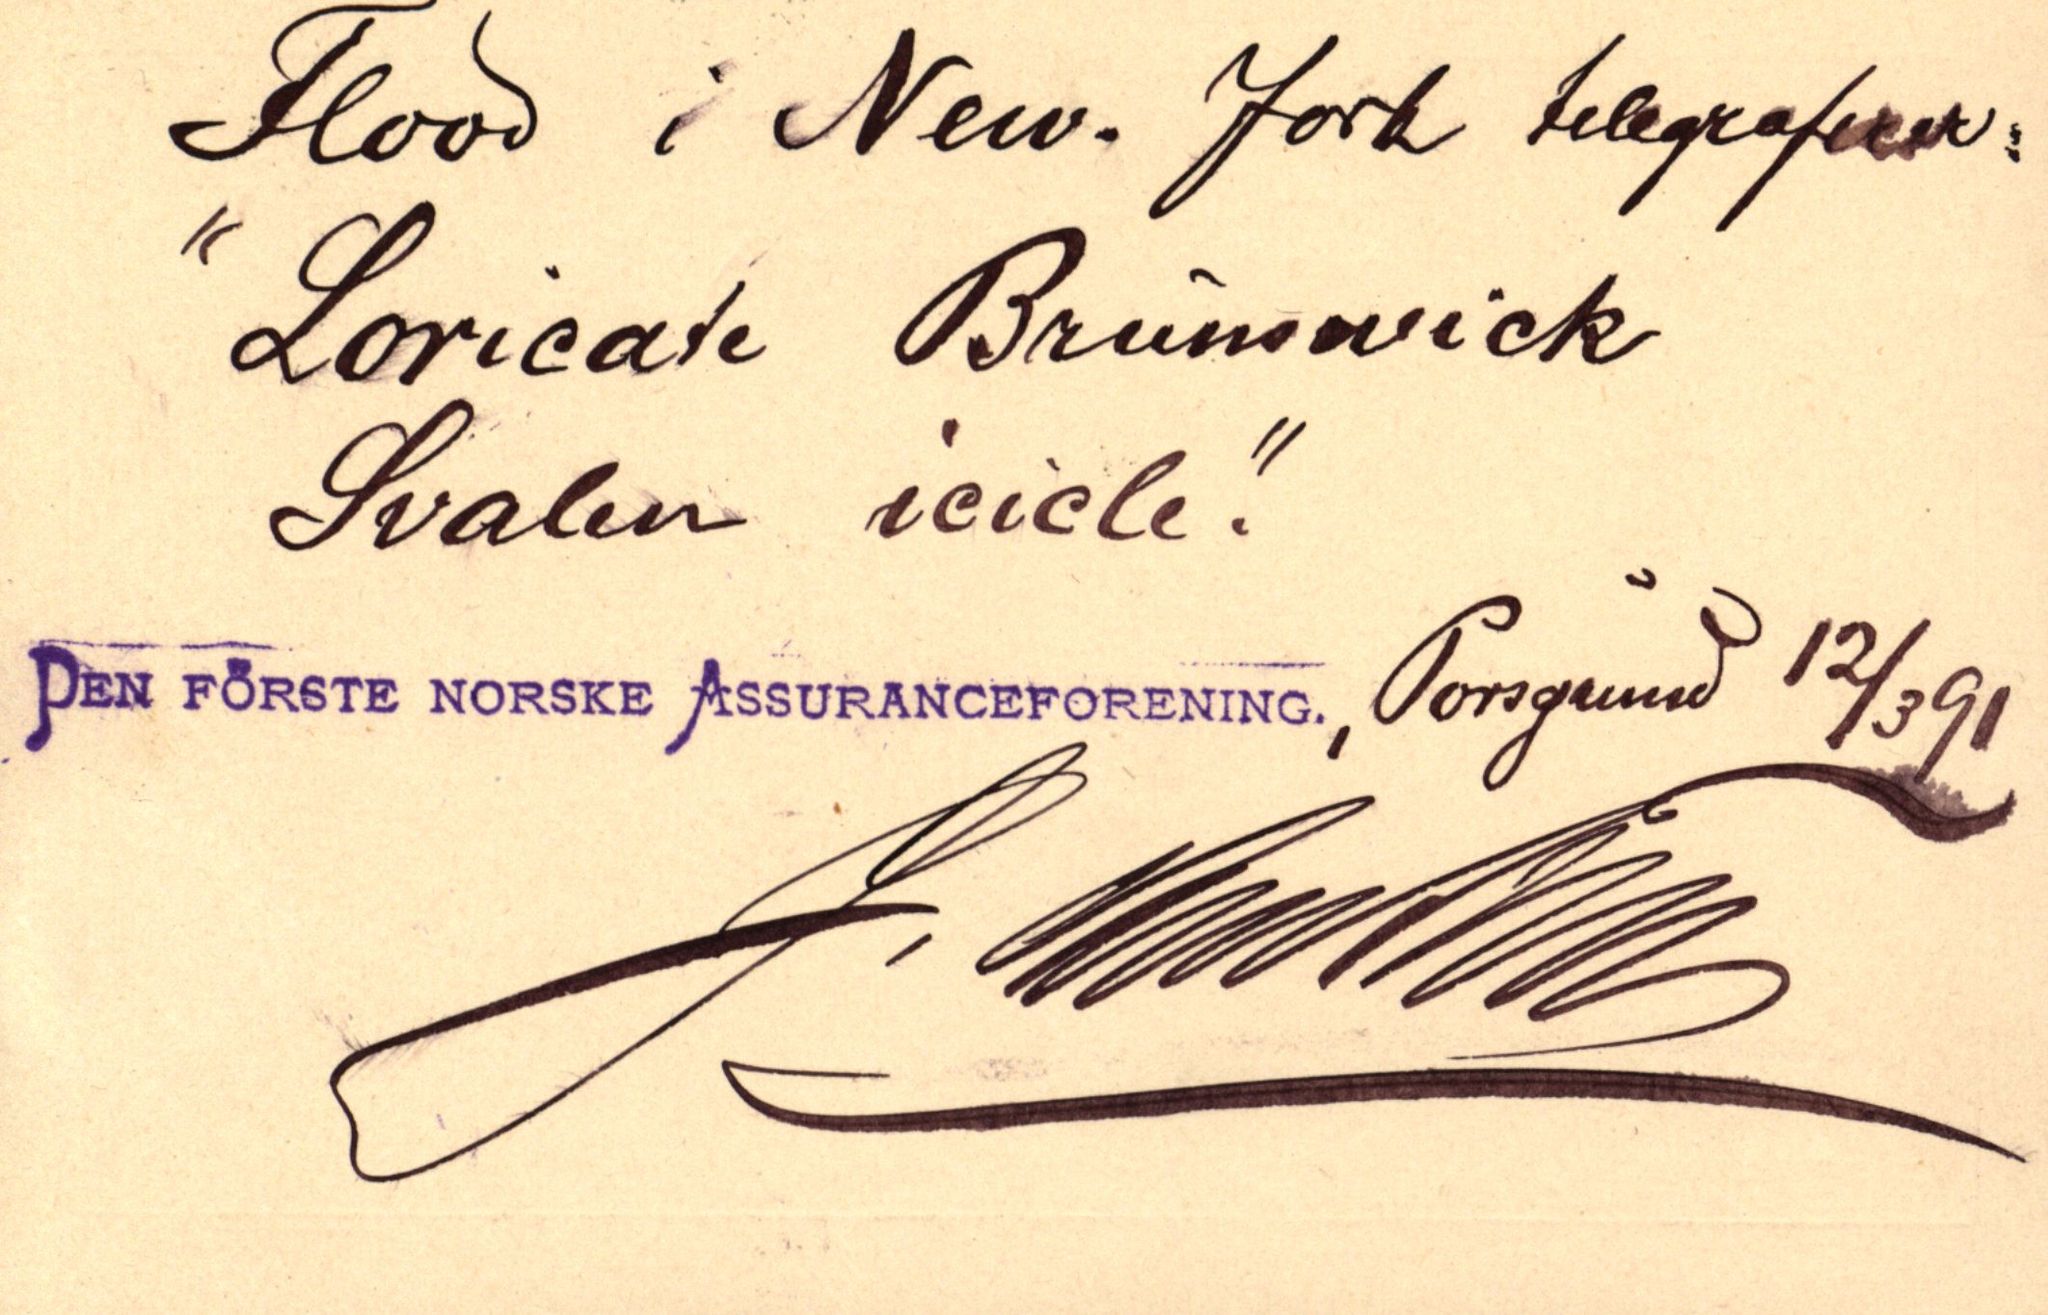 Flood i New. York telegraferer:
"Loricate Brunswick
Svalen icicle."
DEN FÖRSTE NORSKE ASSURANCEFORENING., Porsgrund 12/3 91
J.